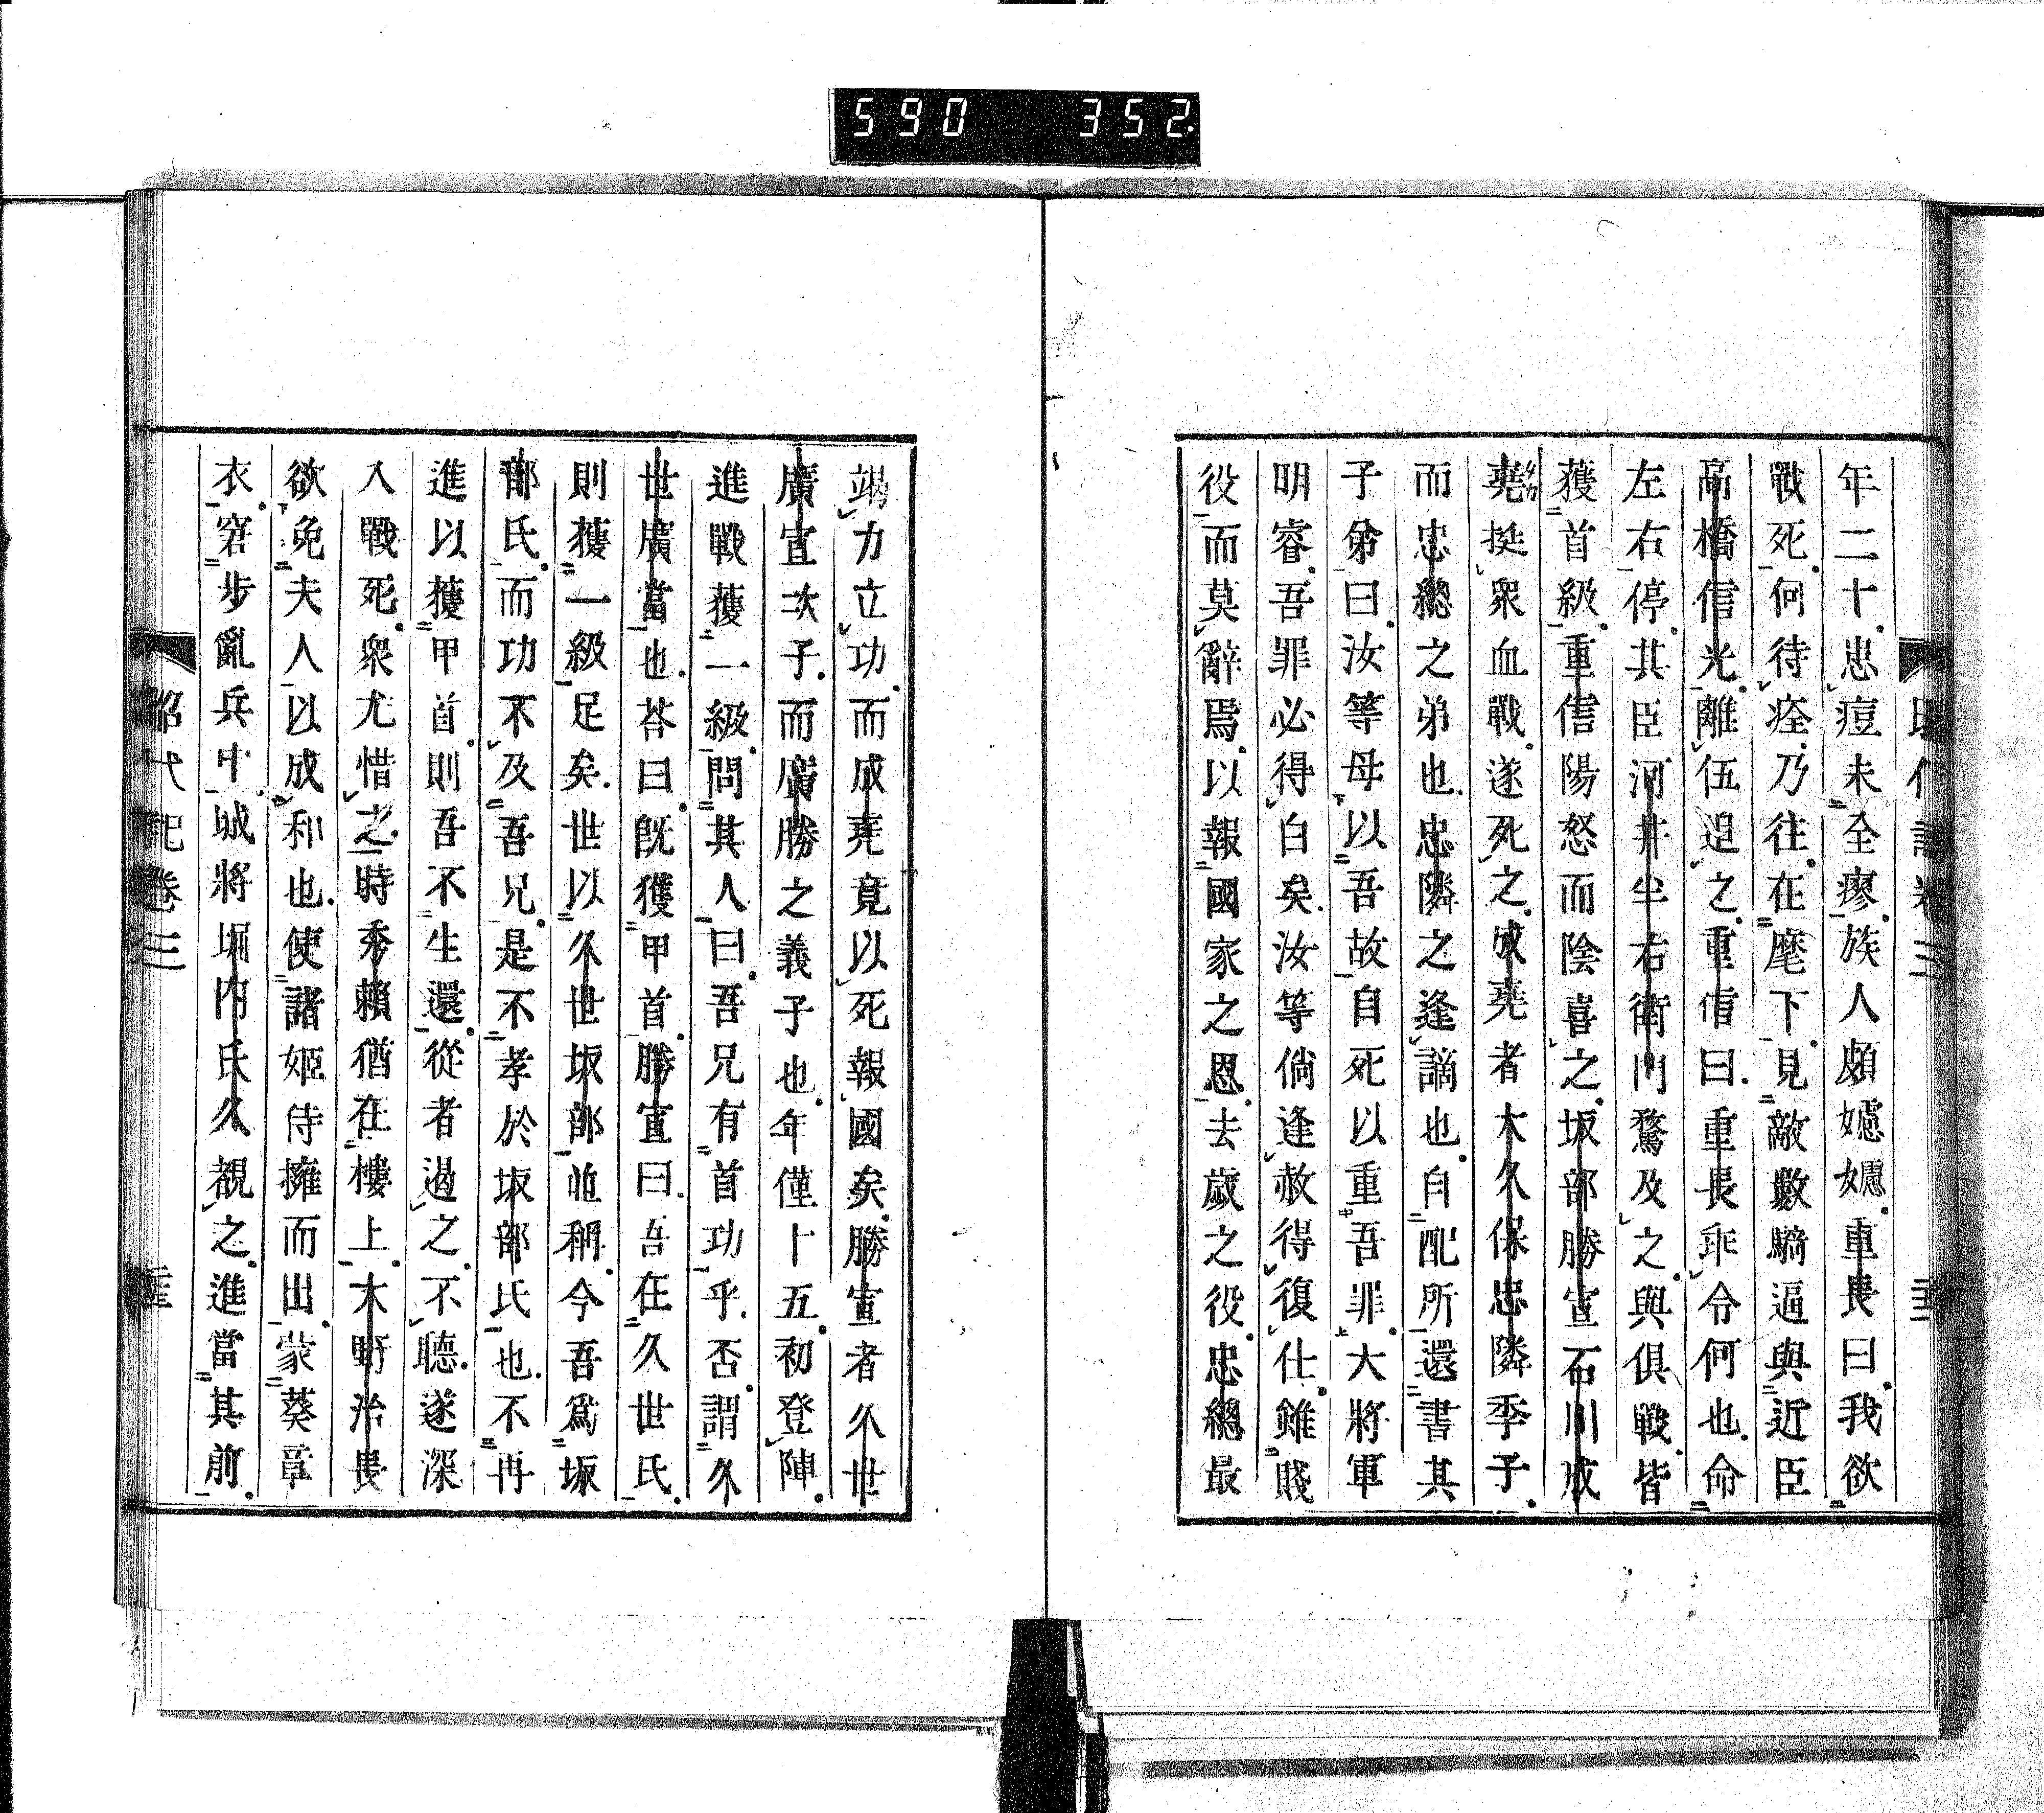 590 352
年二十患痘未全瘳族人頗嫕嫕重長曰我欲
戰死何待痊乃往在麾下見敵數騎逼與近臣
高橋信光離伍追之重信曰重長乖令何也命
左右停其臣河井半右衛門騖及之與俱戰皆
獲首級重信陽怒而陰喜之坂部勝宣石川成
堯挺衆血戰遂死之成堯者大久保忠隣季子
而忠總之弟也忠隣之逢謫也自配所還書其
子弟曰汝等毋以吾故自死以重吾罪大將軍
明睿吾罪必得白矣汝等倘逢赦得復仕雖賤
役而莫辭焉以報國家之恩去歲之役忠總最
竭力立功而成堯竟以死報國矣勝宣者久世
廣宣次子而廣勝之義子也年僅十五初登陣
進戰獲一級問其人曰吾兄有首功乎否謂久
世廣當也荅曰旣獲甲首勝宣曰吾在久世氏
則獲一級足矣世以久世坂部並稱今吾爲坂
部氏而功不及吾兄是不孝於坂部氏也不再
進以獲甲首則吾不生還從者遏之不聽遂深
入戰死衆尤惜之時秀賴猶在樓上大野治長
欲免夫人以成和也使諸姬侍擁而出蒙葵章
衣窘步亂兵中城將堀内氏久覩之進當其前
昭代記卷三